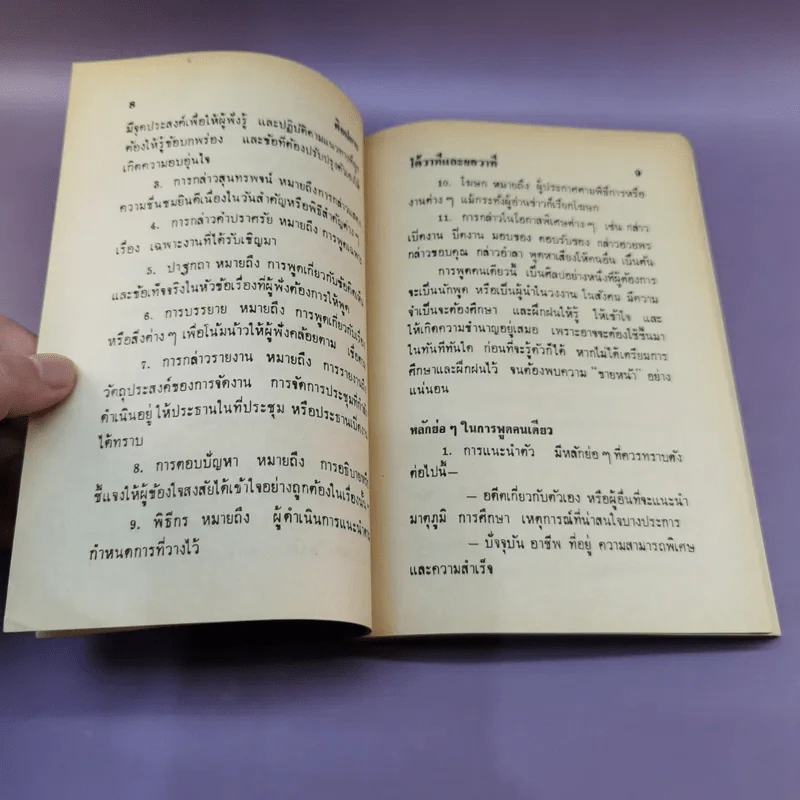 ๘
มีจุดประสงค์เพื่อให้ผู้ฟังรู้ และปฏิบัติตามแนวทางที่
ต้องให้รู้ข้อบกพร่อง และข้อที่ต้องปรับปรุง
เกิดความอบอุ่นใจ
3. การกล่าวสุนทรพจน์ หมายถึงการกล่าว
ความชื่นชมยินดีเนื่องในวันสำคัญหรือพิธีสำคัญต่าง ๆ
4. การกล่าวคำปราศรัย หมายถึง การพูดเฉพาะ
เรื่อง เฉพาะงานที่ได้รับเชิญมา
5. ปาฐกถา หมายถึง การพูดเกี่ยวกับข้อคิดเห็น
และข้อเท็จจริงในหัวข้อเรื่องที่ผู้ฟังต้องการให้พูด
6. การบรรยาย หมายถึง การพูดเกี่ยวกับ
หรือสิ่งต่าง ๆ เพื่อโน้มน้าวให้ผู้ฟังคล้อยตาม
7. การกล่าวรายงาน หมายถึง การรายงาน
วัตถุประสงค์ของการจัดงาน การจัดการประชุมที่กำลัง
ดำเนินอยู่ ให้ประธานในที่ประชุม หรือประธานเปิดงาน
ได้ทราบ
8. การตอบปัญหา หมายถึง การอธิบาย
ชี้แจงให้ผู้ข้องใจสงสัยได้เข้าใจอย่างถูกต้องในเรื่องนั้น ๆ
9. พิธีกร หมายถึง ผู้ดำเนินการแนะนำ
กำหนดการที่วางไว้
โต้วาทีและยอวาที
๙
10. โฆษก หมายถึง ผู้ประกาศตามพิธีการหรือ
งานต่าง ๆ แม้กระทั่งผู้อ่านข่าวก็เรียกโฆษก
11. การกล่าวในโอกาสพิเศษต่าง ๆ เช่น กล่าว
เปิดงาน ปิดงาน มอบของ ตอบรับของ กล่าวอวยพร
กล่าวขอบคุณ กล่าวอำลา พูดหาเสียงให้คนอื่น เป็นต้น
การพูดคนเดียวนี้ เป็นศิลปอย่างหนึ่งที่ผู้ต้องการ
จะเป็นนักพูด หรือเป็นผู้นำในวงงาน ในสังคม มีความ
จำเป็นจะต้องศึกษา และฝึกฝนให้รู้ ให้เข้าใจ และ
ให้เกิดความชำนาญอยู่เสมอ เพราะอาจจะต้องใช้ขึ้นมา
ในทันทีทันใด ก่อนที่จะรู้ตัวก็ได้ หากไม่ได้เตรียมการ
ศึกษาและฝึกฝนไว้ จนต้องพบความ "ขายหน้า" อย่าง
แน่นอน
หลักย่อ ๆ ในการพูดคนเดียว
1. การแนะนำตัว มีหลักย่อ ๆ ที่ควรทราบดัง
ต่อไปนี้—
— อดีตเกี่ยวกับตัวเอง หรือผู้อื่นที่จะแนะนำ
มาตุภูมิ การศึกษา เหตุการณ์ที่น่าสนใจบางประการ
— ปัจจุบัน อาชีพ ที่อยู่ ความสามารถพิเศษ
และความสำเร็จ